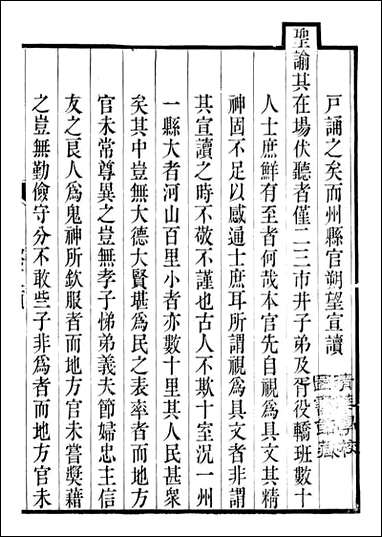 戸誦之矣而州縣官朔望宣讀
聖諭其在場伏聽者僅二三市井子弟及胥役轎班數十
人士庶鮮有至者何哉本官先自視爲具文其精
神固不足以感通士庶耳所謂視爲具文者非謂
其宣讀之時不敬不謹也古人不欺十室況一州
一縣大者河山百里小者亦數十里其人民甚衆
矣其中豈無大德大賢堪爲民之表率者而地方
官未常尊異之豈無孝子悌弟義夫節婦忠主信
友之良人爲鬼神所欽服者而地方官未嘗奬藉
之豈無勤儉守分不敢些子非爲者而地方官未